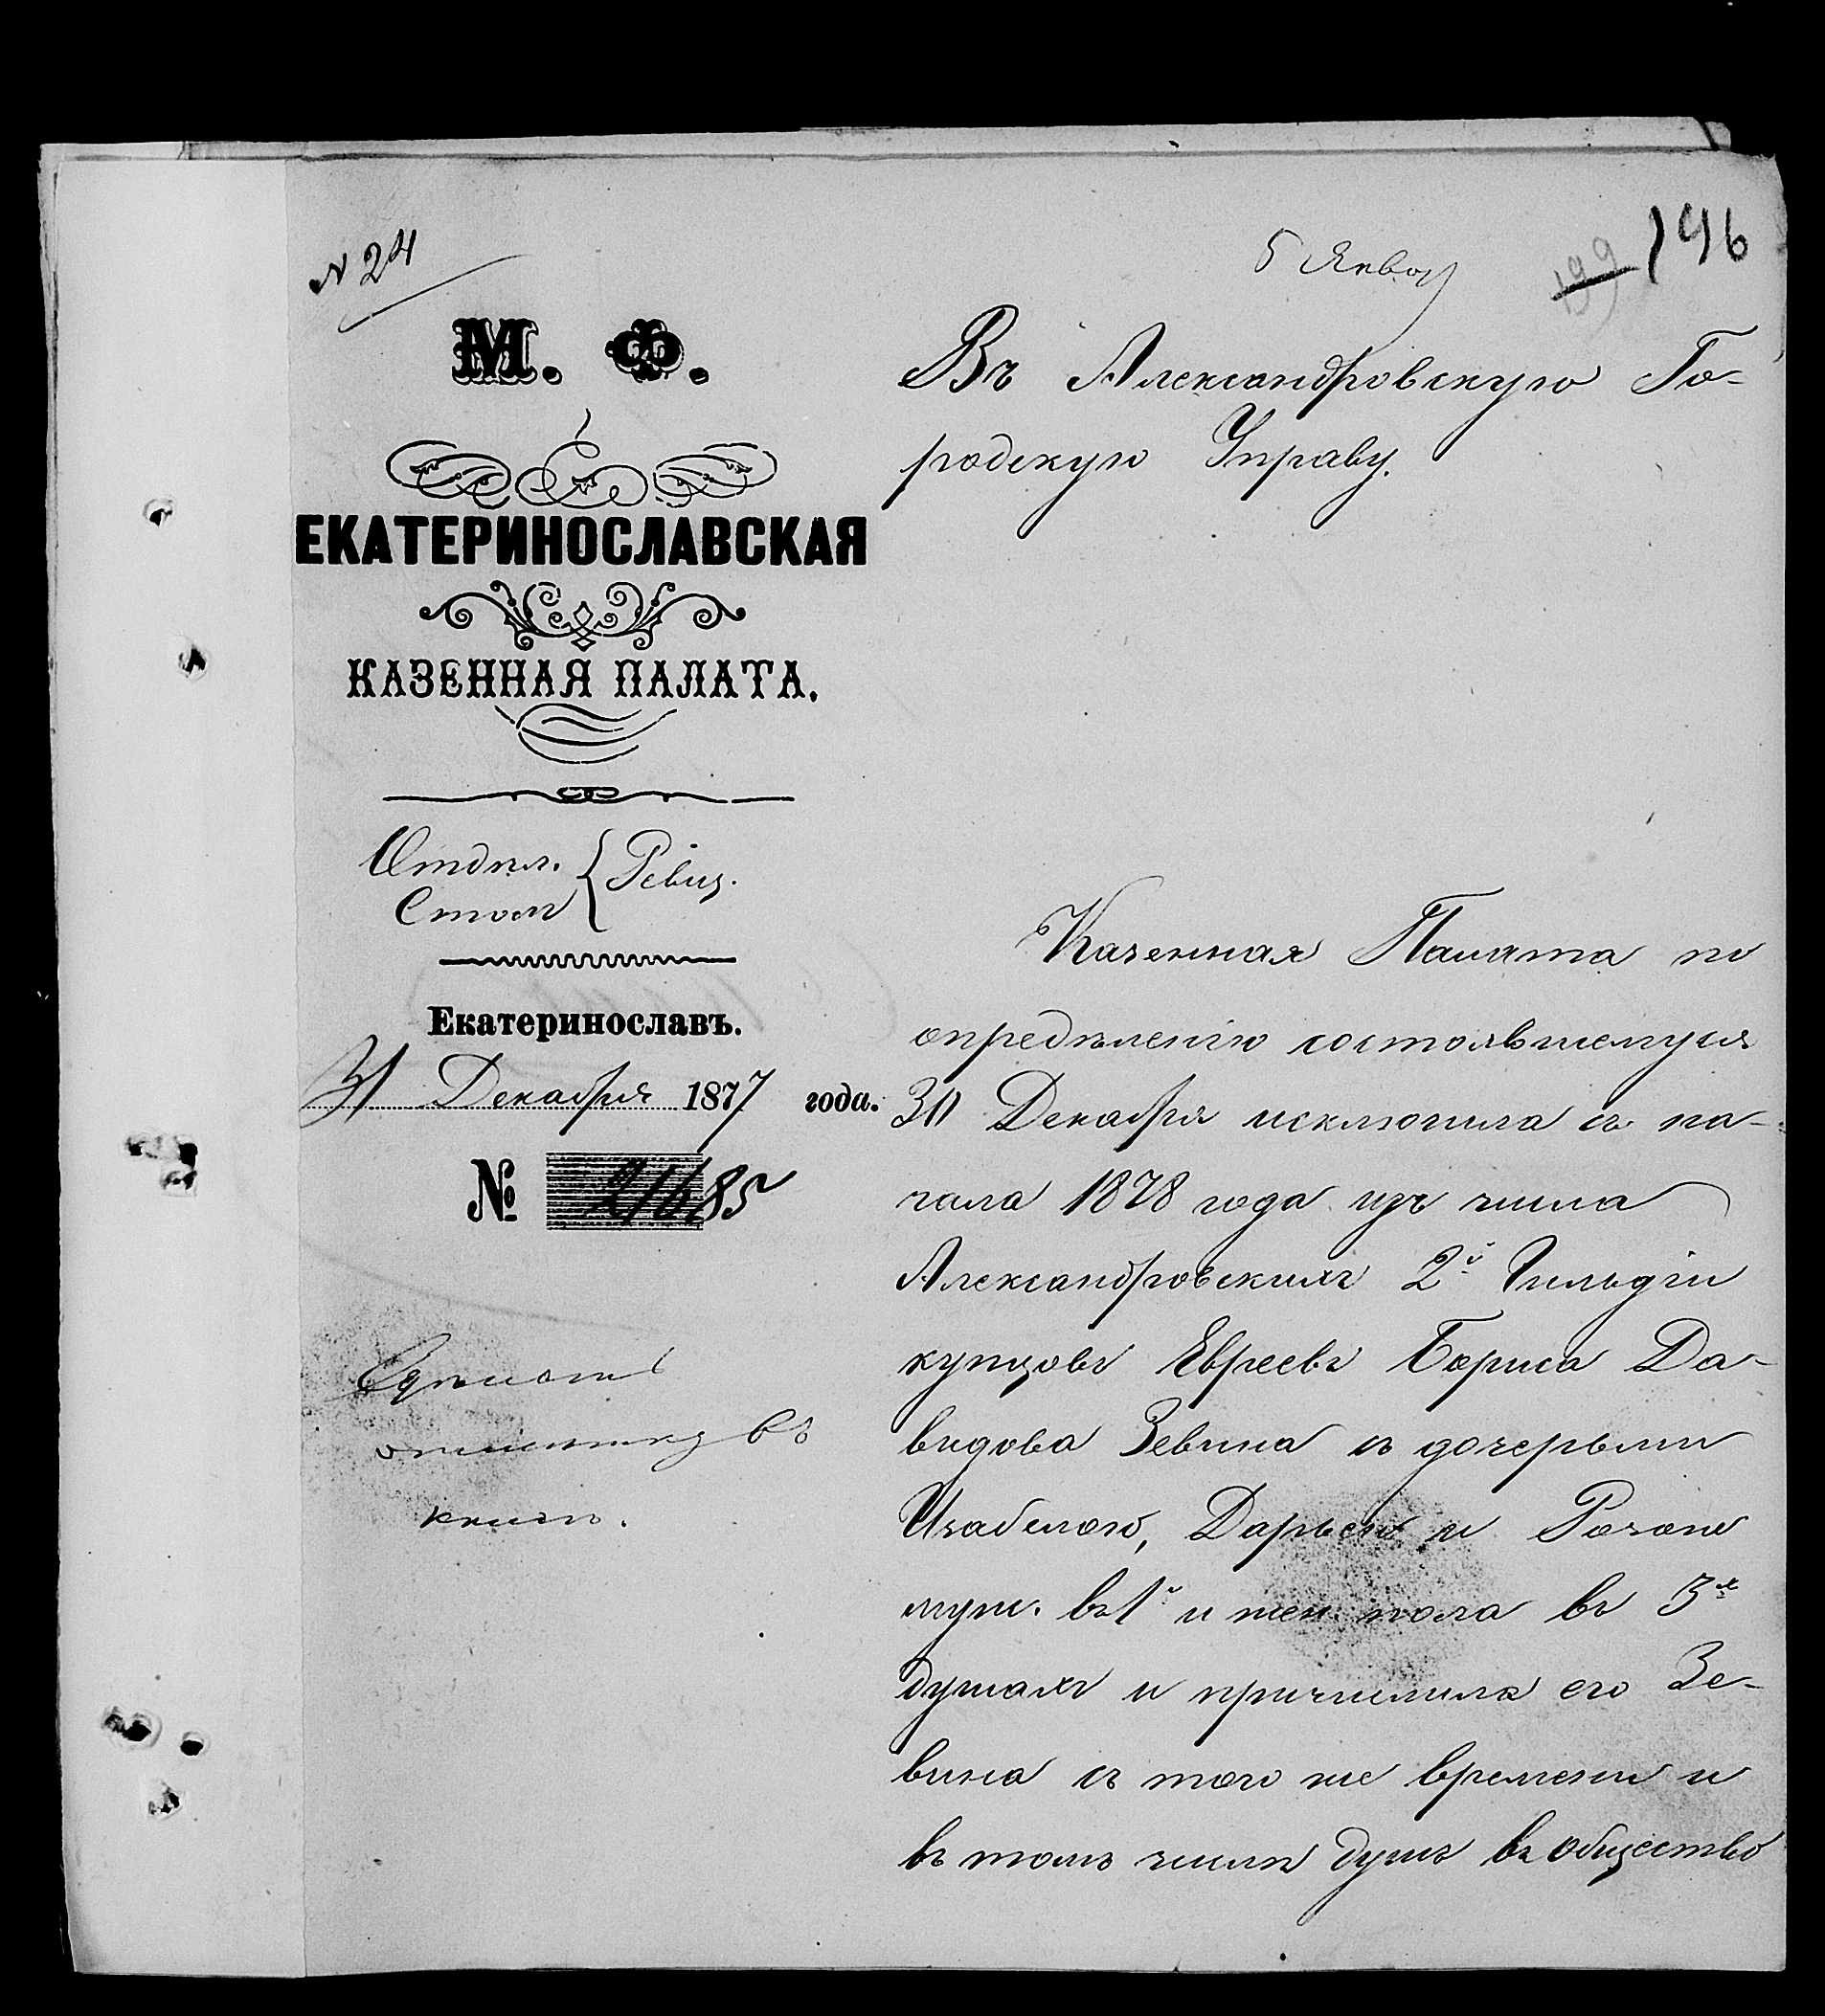 N 24
5 Январ
199
196
М. Ф.
ЕКАТЕРИНОСЛАВСКАЯ
КАЗЕННАЯ ПАЛАТА.
Отдѣл.
Столъ
Ревиз.
Екатеринославъ.
31 Декабря 1877 года.
№ 21685
Сдѣлать
отмѣтку въ
книгѣ.
Въ Александровскую Го-
родскую Управу.
Казенная Палата по
опредѣленію состоявшемуся
30 Декабря исключила съ на-
чала 1878 года изъ числа
Александровскихъ 2й Гильдіи
купцовъ Евреевъ Бориса Да-
видова Зевина съ дочерьми
Изабелою, Дарьею и Розою
муж. въ 1й и жен. пола въ 3х
душахъ и причислила его Зе-
вина съ того же времени и
въ томъ числѣ душъ въ общество